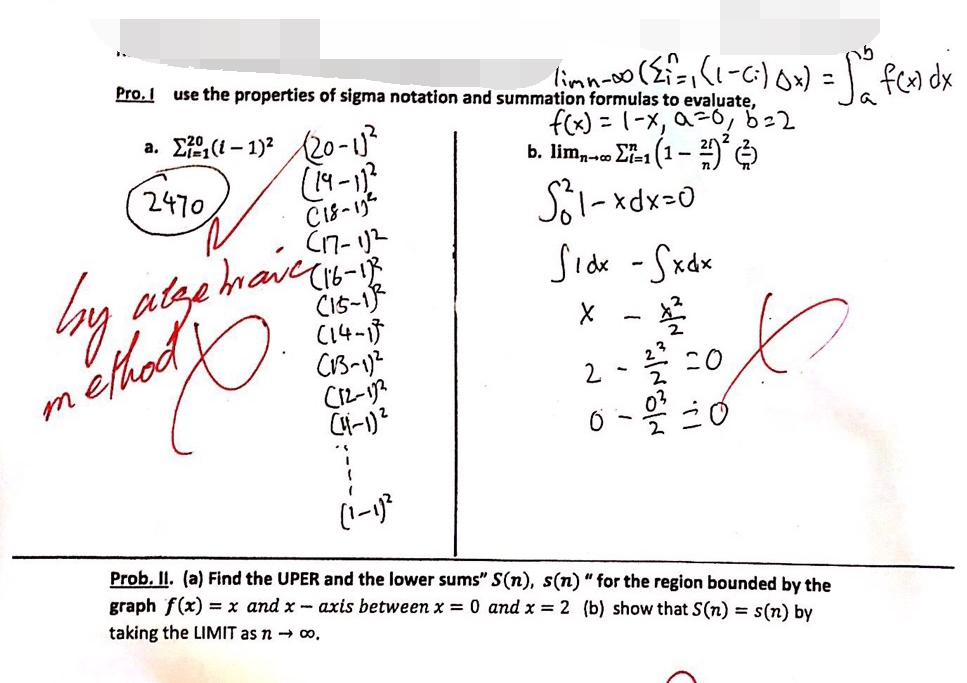 lim n-∞ (Σ i=1 n (1-Ci) Δx) = ∫ a b f(x) dx
Pro. I use the properties of sigma notation and summation formulas to evaluate,
f(x) = 1-x, a=0, b=2
a. ∑²⁰ᵢ₌₁(i − 1)²
2470
(20-1)²
(19-1)²
(18-1)²
(17-1)²
(16-1)²
(15-1)²
(14-1)²
(13-1)²
(12-1)²
(11-1)²
(1-1)²
by algebraic
method
b. limₙ→∞ ∑ⁿᵢ₌₁ (1 − 2i/n)² (2/n)
∫₀² 1-xdx=0
∫1dx - ∫xdx
x - x²/2
2 - 2²/2 = 0
0 - 0²/2 = 0
Prob. II. (a) Find the UPER and the lower sums" S(n), s(n) "for the region bounded by the
graph f(x) = x and x − axis between x = 0 and x = 2 (b) show that S(n) = s(n) by
taking the LIMIT as n → ∞.